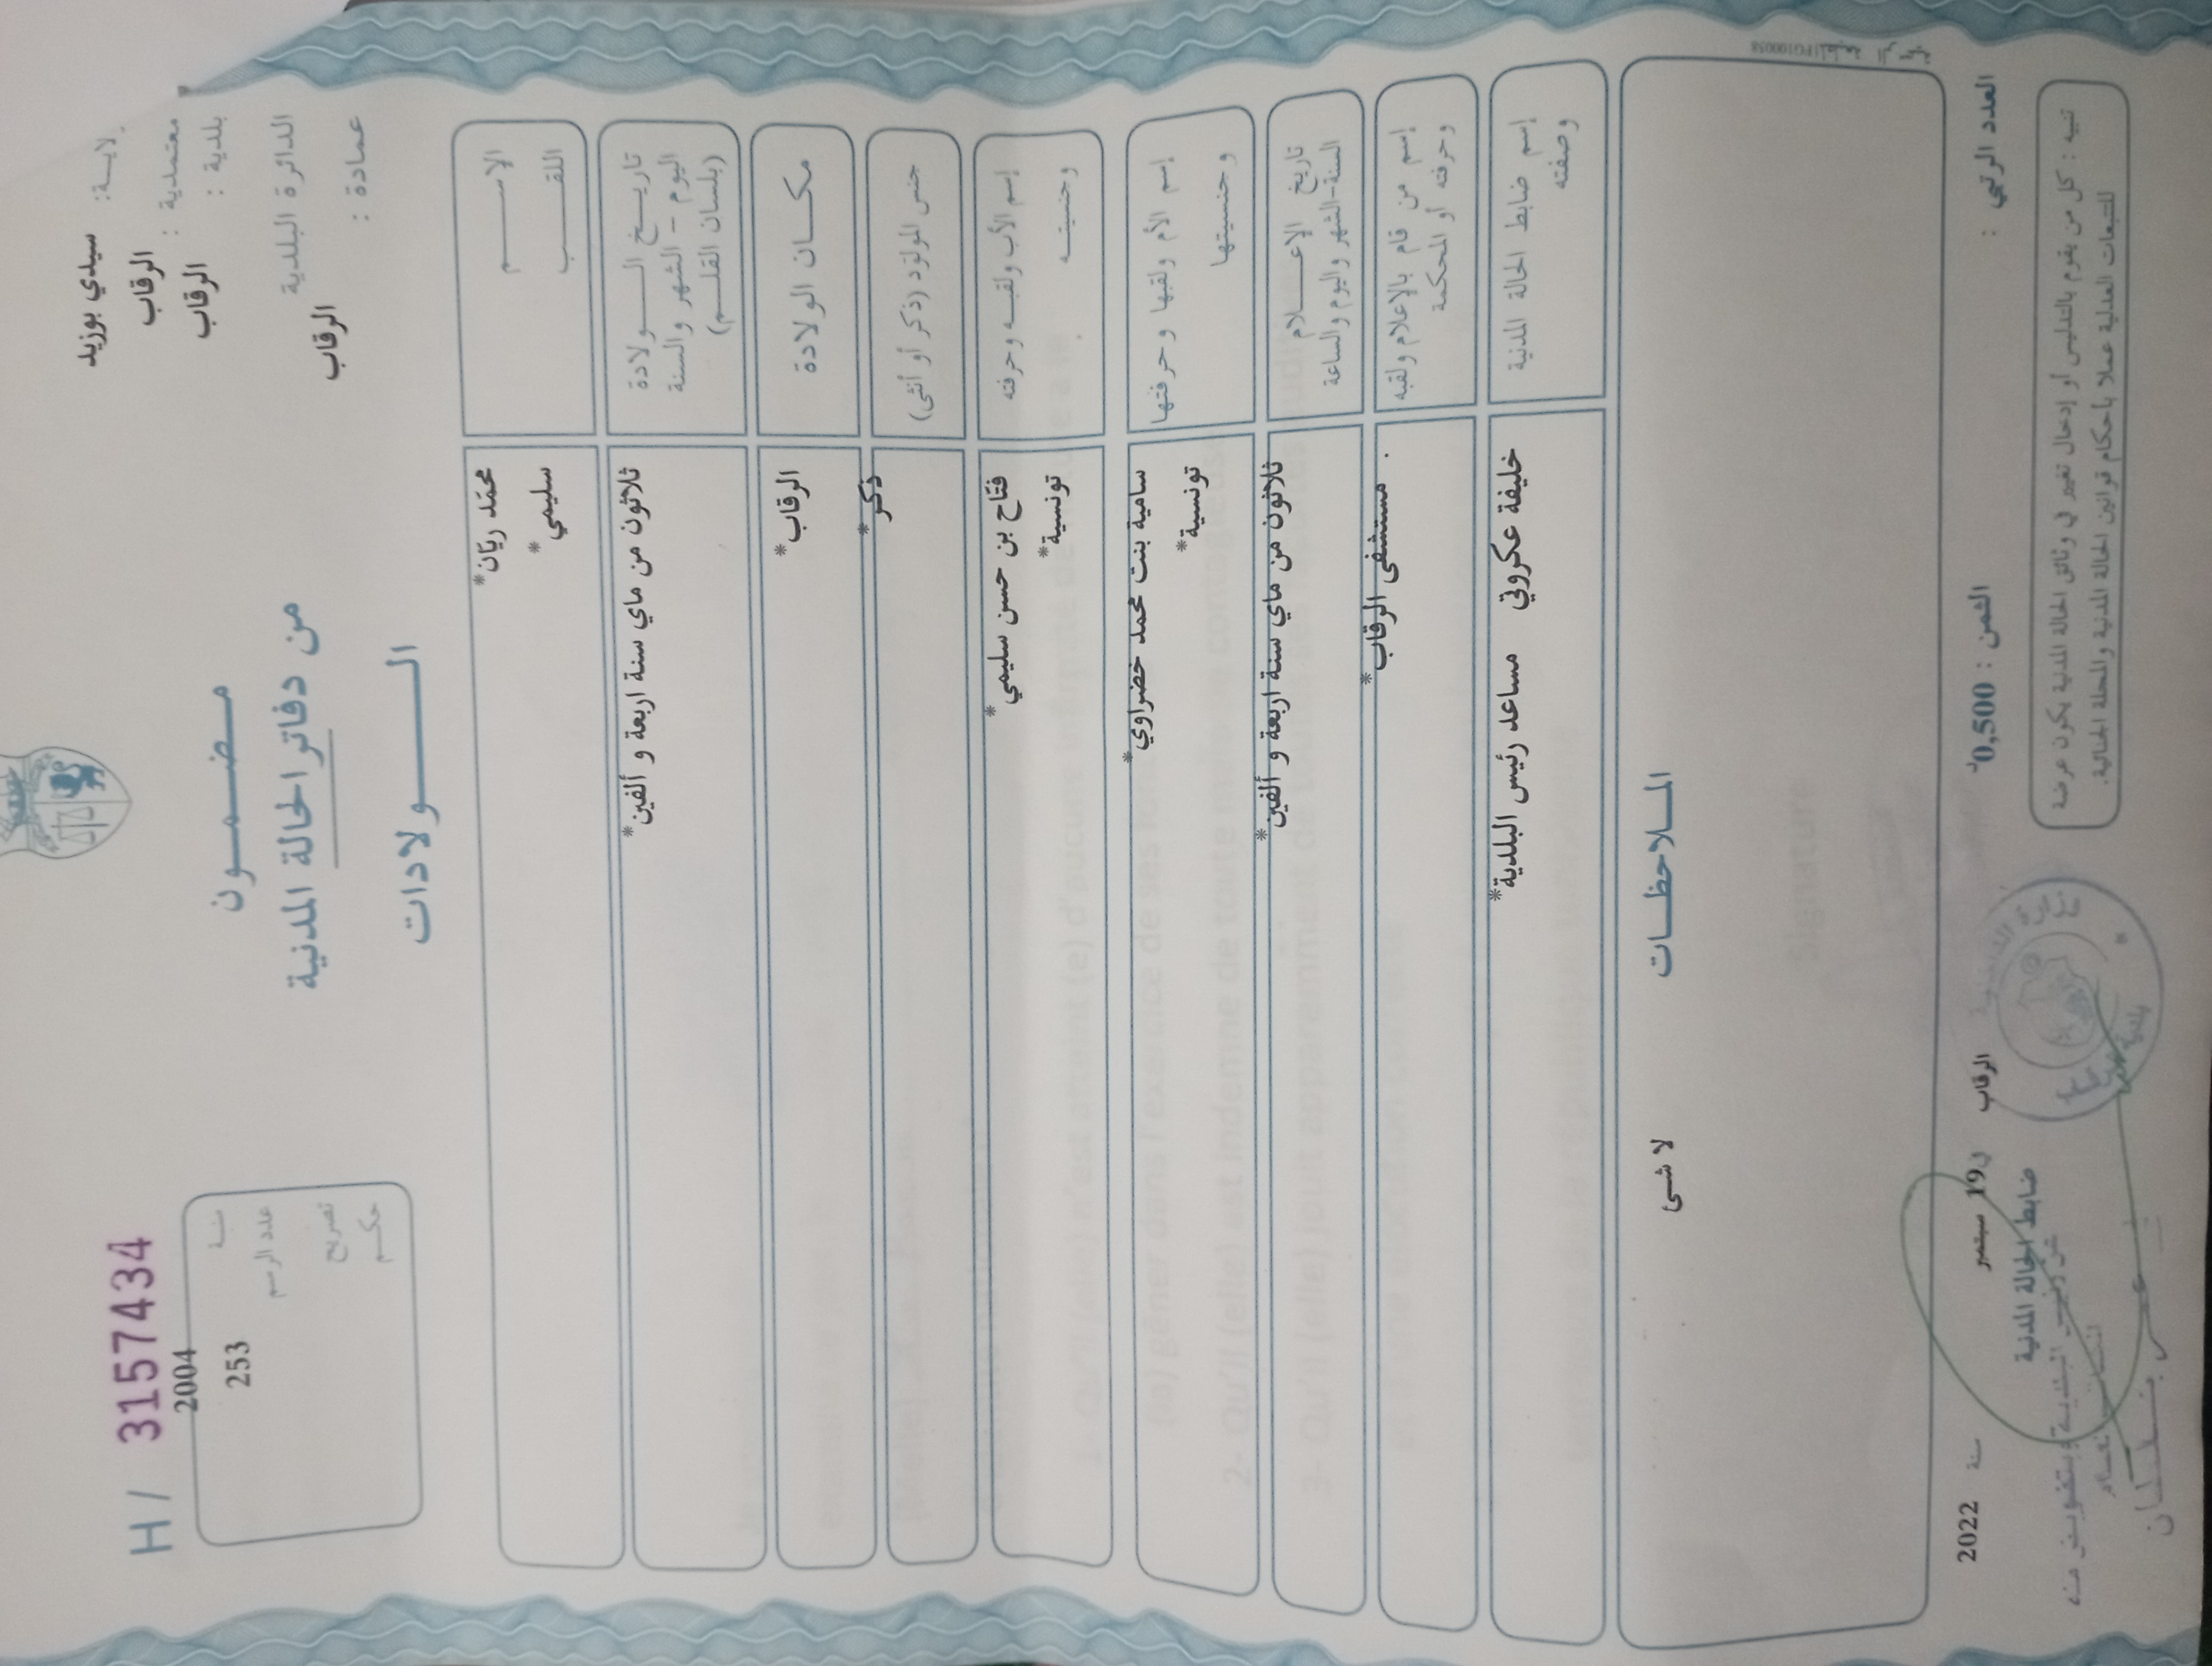 لاية: سيدي بوزيد
معتمدية : الرقاب
بلدية : الرقاب
الدائرة البلدية
الرقاب
عمادة :
H / 3157434
2004
سنة
253
عدد الرسم
تصريح
حكم
مضمون
من دفاتر الحالة المدنية
الولادات
الاسم محمّد ريّان*
اللقب سليمي*
تاريخ الولادة ثلاثون من ماي سنة اربعة و ألفين*
اليوم - الشهر والسنة
(بلسان القلم)
مكان الولادة الرقاب*
جنس المولود (ذكر أو أنثى) ذكر*
إسم الأب ولقبه وحرفته فتّاح بن حسن سليمي*
وجنسيته تونسية*
إسم الأم ولقبها وحرفتها سامية بنت محمد خضراوي*
وجنسيتها تونسية*
تاريخ الإعلام ثلاثون من ماي سنة اربعة و ألفين*
السنة-الشهر واليوم والساعة
إسم من قام بالإعلام ولقبه مستشفى الرقاب*
وحرفته أو المحكمة
إسم ضابط الحالة المدنية خليفة عكروتي مساعد رئيس البلدية*
وصفته
الملاحظات
لا شئ
العدد الرتبي :
الثمن : 0,500د
الرقاب في 19 سبتمبر سنة 2022
ضابط الحالة المدنية
تنبيه : كل من يقوم بالتدليس أو إدخال تغيير في وثائق الحالة المدنية يكون عرضة
للتتبعات العدلية عملا بأحكام قوانين الحالة المدنية والمجلة الجنائية.